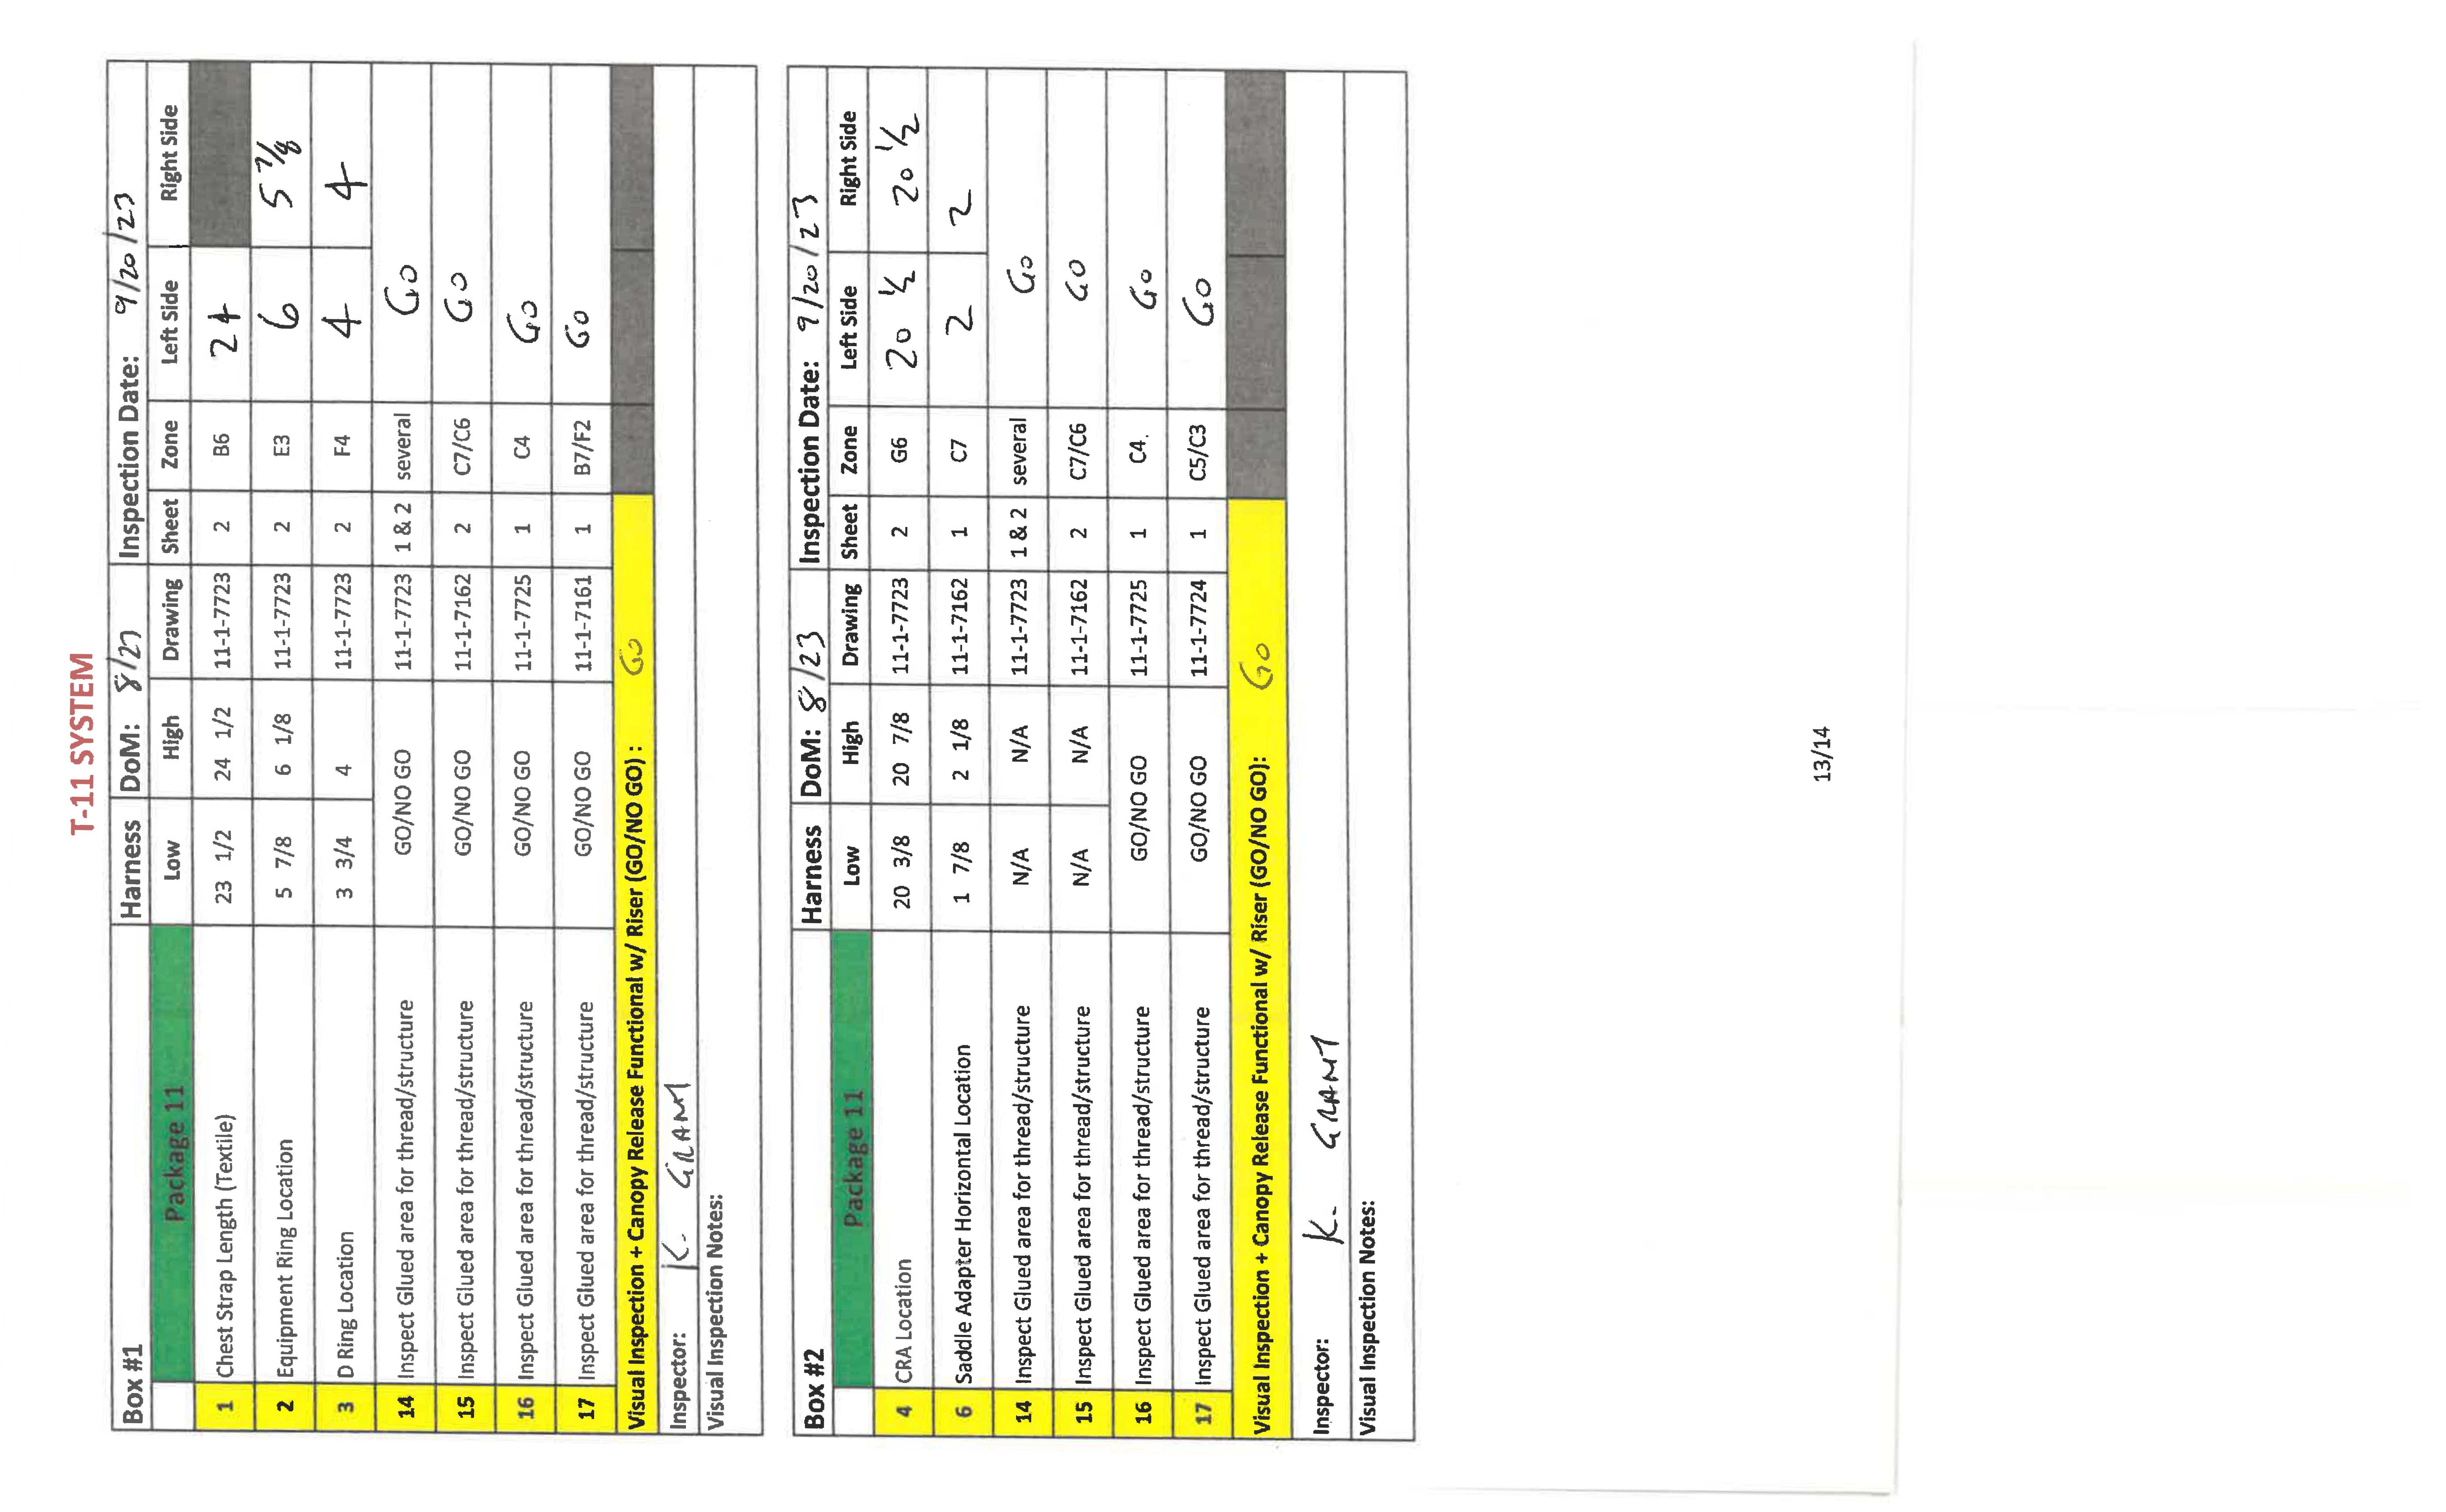 T-11 SYSTEM
Box #1 Harness DoM: 8/23 Inspection Date: 9/20/23
Package 11 Low High Drawing Sheet Zone Left Side Right Side
1 Chest Strap Length (Textile) 23 1/2 24 1/2 11-1-7723 2 B6 24
2 Equipment Ring Location 5 7/8 6 1/8 11-1-7723 2 E3 6 5 7/8
3 D Ring Location 3 3/4 4 11-1-7723 2 F4 4 4
14 Inspect Glued area for thread/structure GO/NO GO 11-1-7723 1 & 2 several Go
15 Inspect Glued area for thread/structure GO/NO GO 11-1-7162 2 C7/C6 GO
16 Inspect Glued area for thread/structure GO/NO GO 11-1-7725 1 C4 Go
17 Inspect Glued area for thread/structure GO/NO GO 11-1-7161 1 B7/F2 GO
Visual Inspection + Canopy Release Functional w/ Riser (GO/NO GO) : GO
Inspector: K. GRANT
Visual Inspection Notes:
Box #2 Harness DoM: 8/23 Inspection Date: 9/20/23
Package 11 Low High Drawing Sheet Zone Left Side Right Side
4 CRA Location 20 3/8 20 7/8 11-1-7723 2 G6 20 1/2 20 1/2
6 Saddle Adapter Horizontal Location 1 7/8 2 1/8 11-1-7162 1 C7 2 2
14 Inspect Glued area for thread/structure N/A N/A 11-1-7723 1 & 2 several Go
15 Inspect Glued area for thread/structure N/A N/A 11-1-7162 2 C7/C6 GO
16 Inspect Glued area for thread/structure GO/NO GO 11-1-7725 1 C4. Go
17 Inspect Glued area for thread/structure GO/NO GO 11-1-7724 1 C5/C3 GO
Visual Inspection + Canopy Release Functional w/ Riser (GO/NO GO): GO
Inspector: K. GRANT
Visual Inspection Notes:
13/14